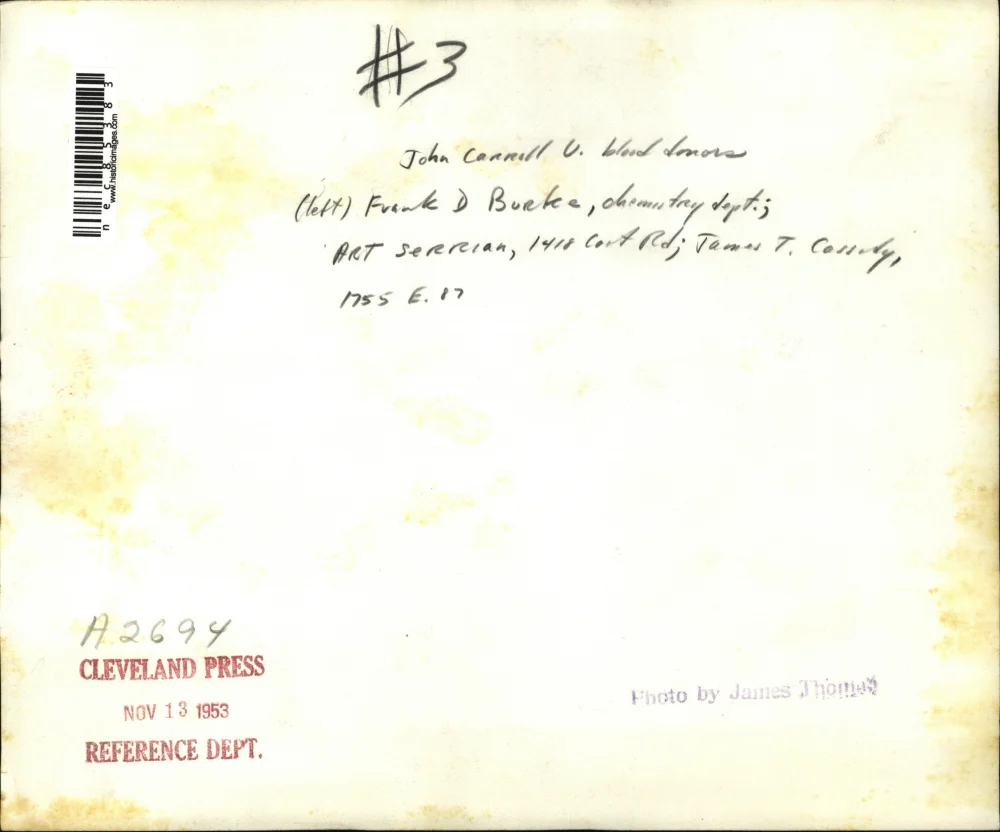 #3
John Carroll U. blood donors
(left) Frank D Burke, chemistry dept.;
ART SERRIAN, 1418 Rd; James T. Cassidy,
1755 E. 87
nec85383
www.historicimages.com
A2694
CLEVELAND PRESS
NOV 13 1953
REFERENCE DEPT.
Photo by James Thomas